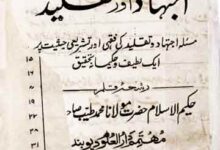 اجتہاد اور تقلید
مسئلہ اجتہاد و تقلید کی فقہی اور تشریعی حیثیت پر
ایک لطیف و حکیمانہ تحقیق
رشحۂ قلم
حکیم الاسلام حضرت مولانا محمد طیب صاحب
مہتمم دارالعلوم دیوبند
۱۵
۱۶
۱۹
۲۲